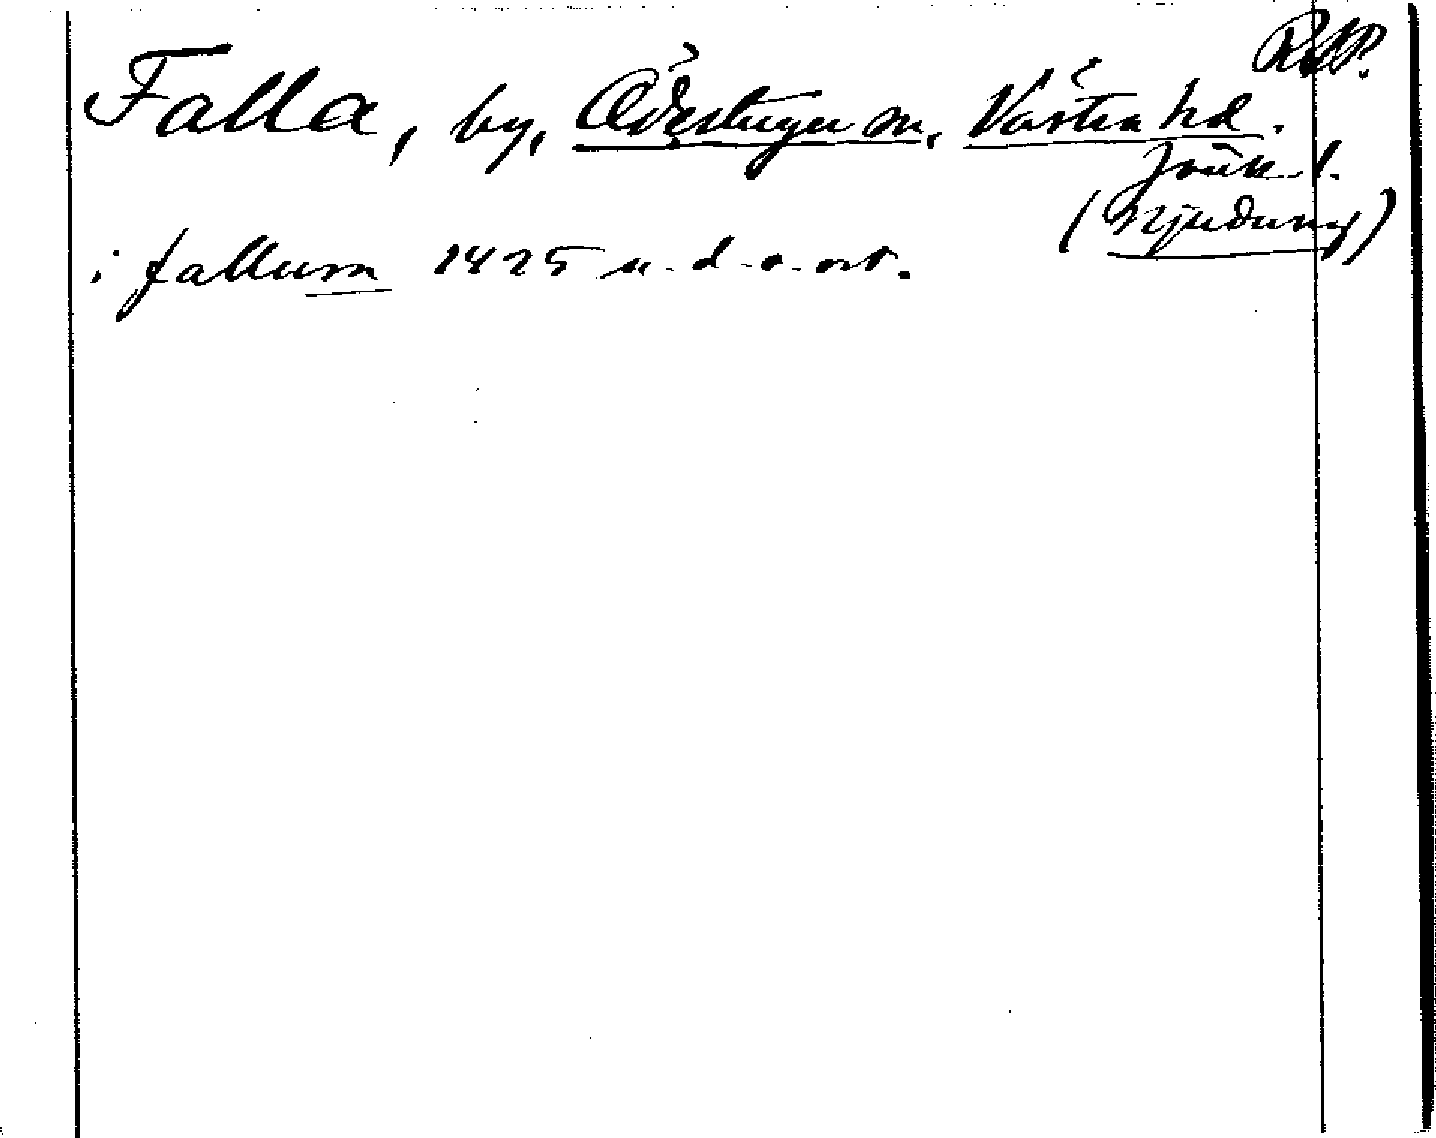 Falla, by, Ödestugu sn, Västra hd.
Jönk. l.
(Njudung)
i fallum 1425 u. d. o. ort.